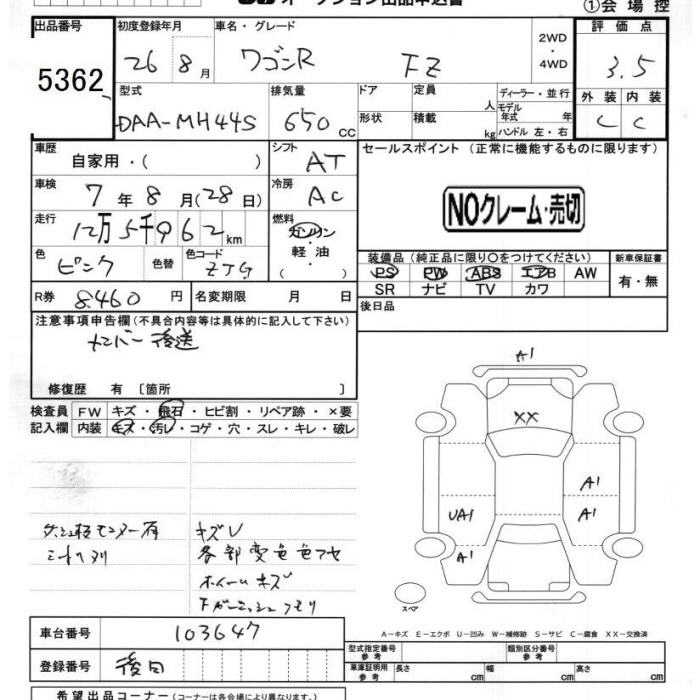 オークション出品申込書
①会場控
出品番号 初度登録年月 車名・グレード 2WD・4WD 評価点
5362 26 8月 ワゴンR FZ 3.5
型式 排気量 ドア 定員 人 ディーラー・並行 外装 内装
DAA-MH44S 650cc 形状 積載 kg モデル年式 年 ハンドル 左・右 C C
車歴 自家用・( ) シフト AT セールスポイント (正常に機能するものに限ります)
車検 7年8月(28日) 冷房 AC NOクレーム・売切
走行 12万5千962km 燃料 ガソリン・軽油
色 ピンク 色替 色コード ZTG 装備品(純正品に限り○をつけてください) 新車保証書
PS PW ABS エアB AW 有・無
SR ナビ TV カワ
R券 8460円 名変期限 月 日 後日品
注意事項申告欄(不具合内容等は具体的に記入して下さい)
ナンバー後送
修復歴 有 [箇所 ]
検査員 FW キズ・飛石・ヒビ割・リペア跡・×要
記入欄 内装 キズ・汚レ・コゲ・穴・スレ・キレ・破レ
A1
XX
A1
UA1 A1
A1
キズU
各部変色色アセ
ホイールキズ
スペア
車台番号 103647
A−キズ E−エクボ U−凹み W−補修跡 S−サビ C−腐食 XX−交換済
登録番号 後日 型式指定番号 参考 類別区分番号 参考
車庫証明用 参考 長さ cm 幅 cm 高さ cm
希望出品コーナー(コーナーは各会場により異なります。)